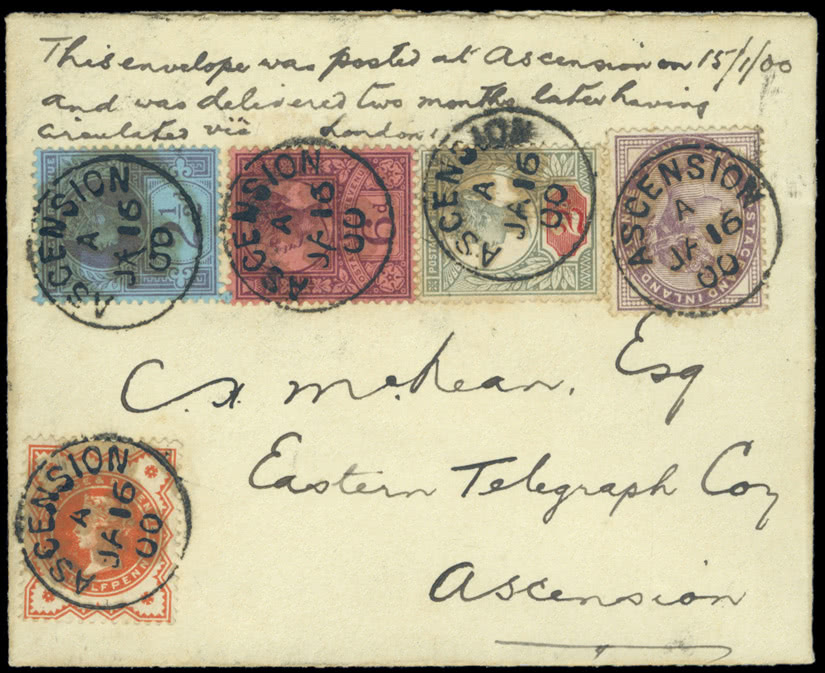 This envelope was posted at Ascension on 15/1/00
and was delivered two months later having
circulated viâ London.
ASCENSION A JA 16 00
ASCENSION A JA 16 00
ASCENSION A JA 16 00
ASCENSION A JA 16 00
2½d
6d
POSTAGE
2d
INLAND
Esq
McKean,
Eastern Telegraph Coy
ASCENSION A JA 16 00
HALFPENNY
Ascension